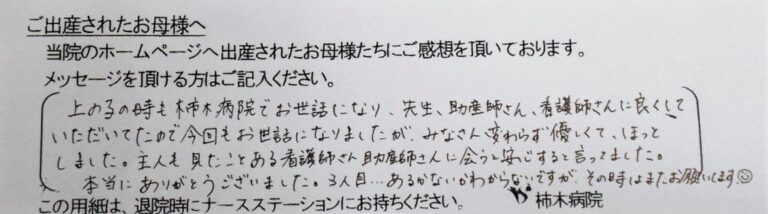 ご出産されたお母様へ
当院のホームページへ出産されたお母様たちにご感想を頂いております。
メッセージを頂ける方はご記入ください。
上の子の時も柿木病院でお世話になり、先生、助産師さん、看護師さんに良くして
いただいてたので今回もお世話になりましたが、みなさん変わらず優しくて、ほっと
しました。主人も見たことある看護師さん助産師さんに会うと安心すると言ってました。
本当にありがとうございました。3人目…あるかないかわからないですが、その時はまたお願いします☺
この用紙は、退院時にナースステーションにお持ちください。 柿木病院